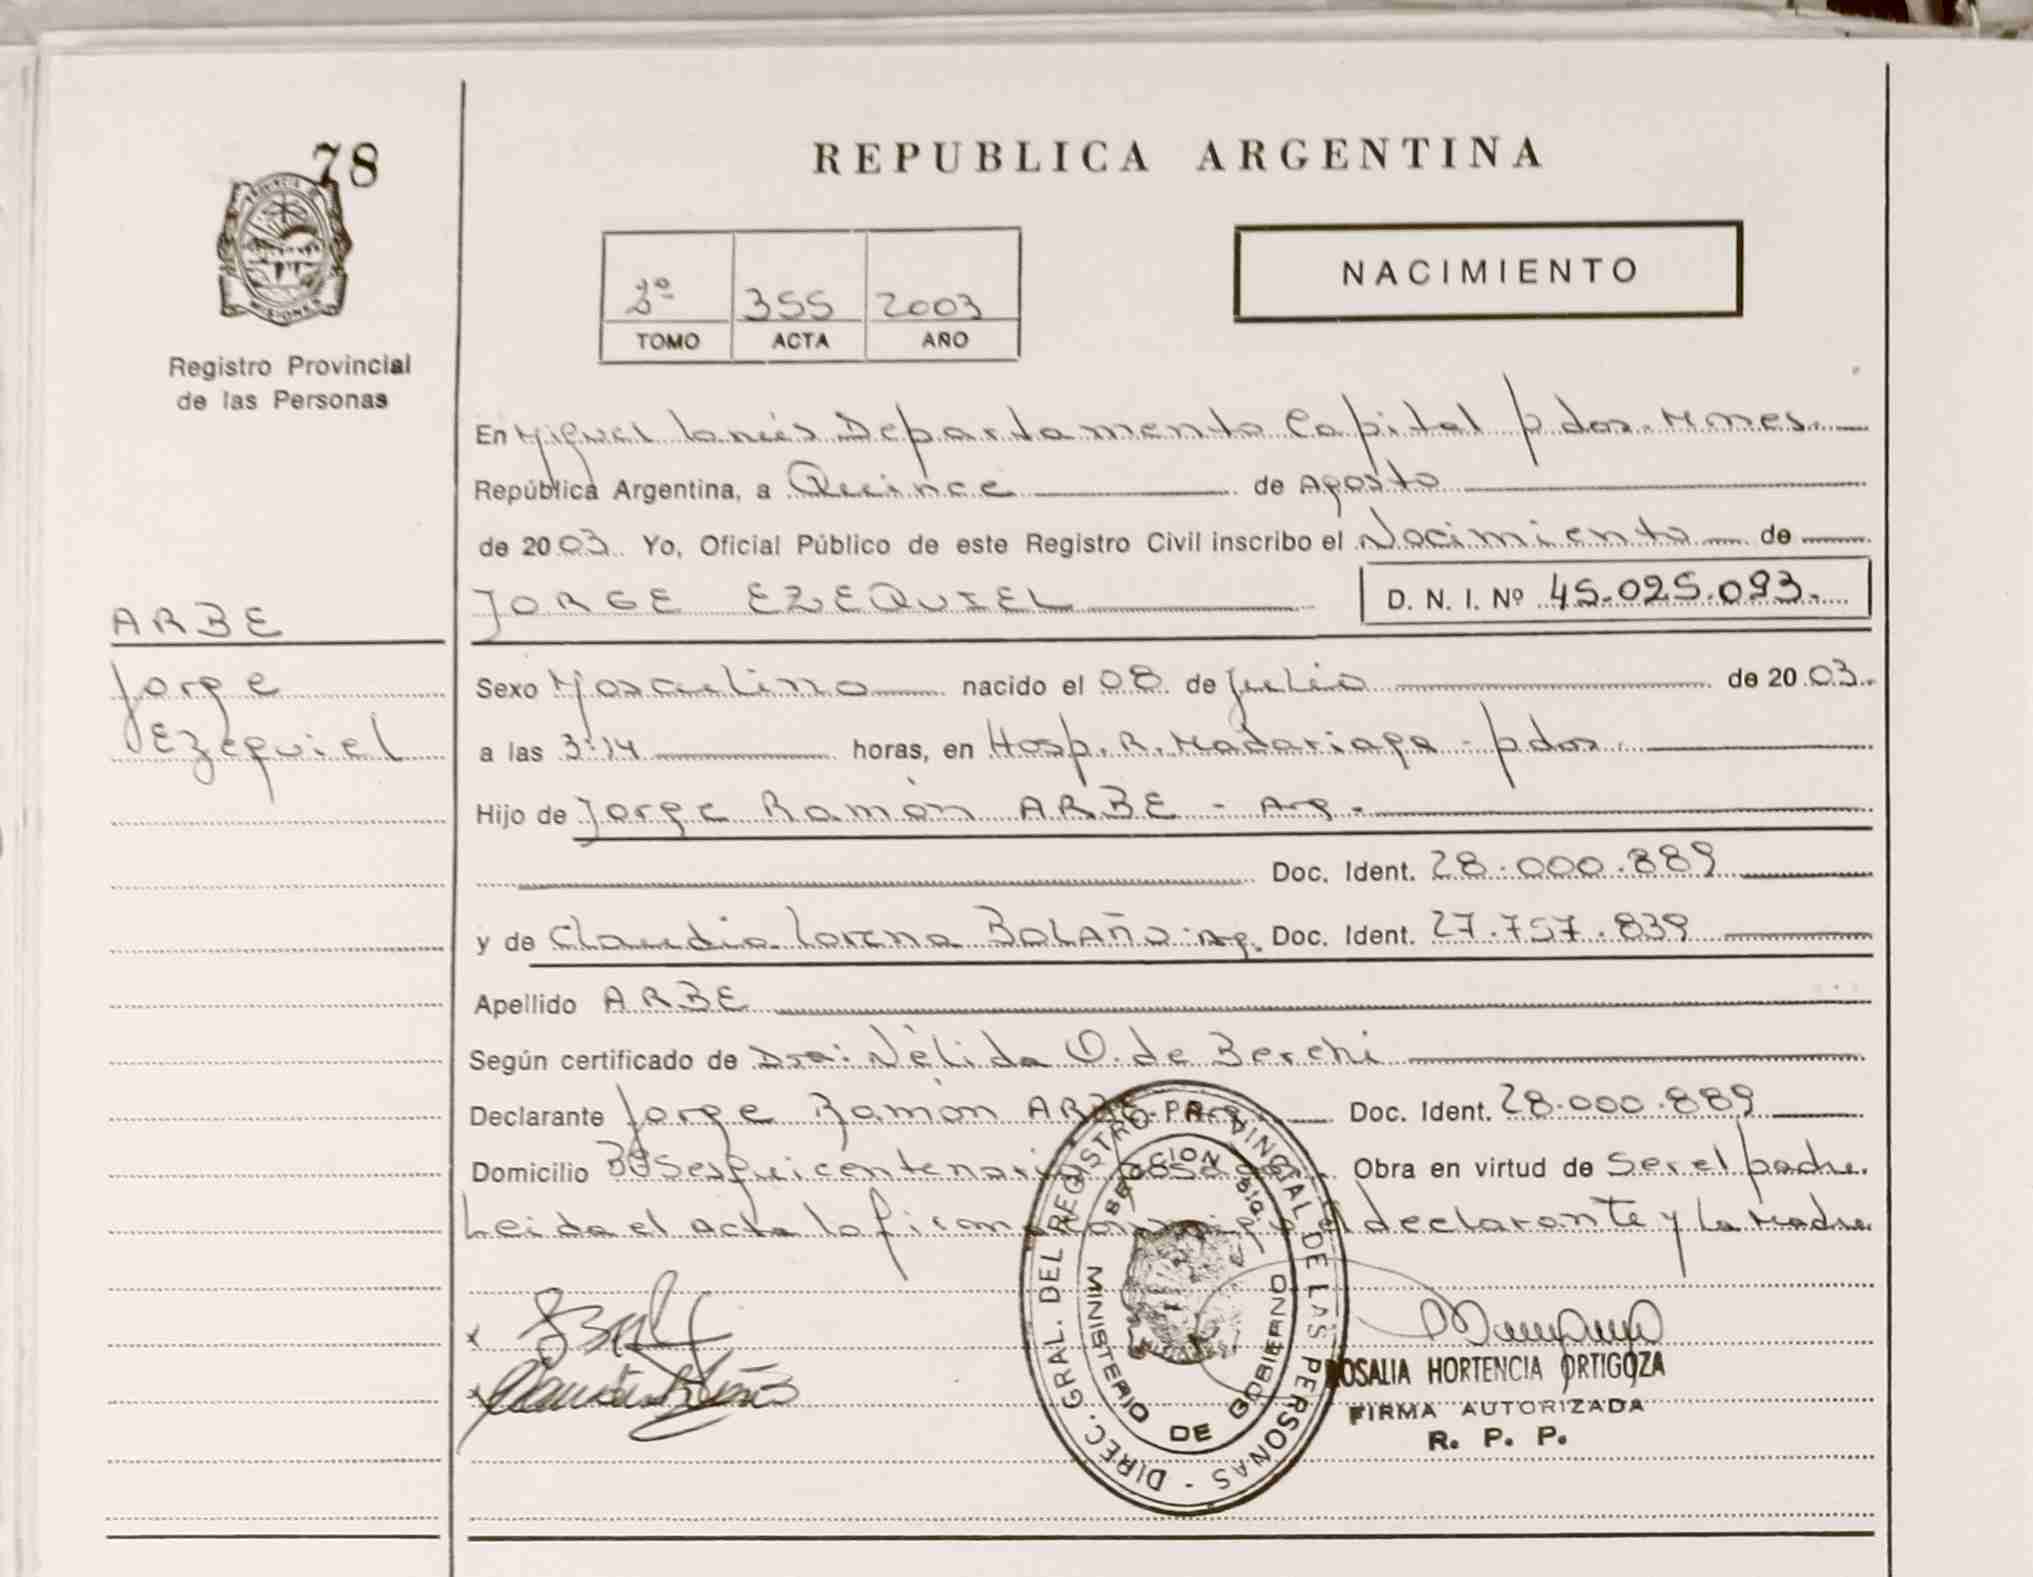 78
PROVINCIA DE
MISIONES
Registro Provincial
de las Personas
REPUBLICA ARGENTINA
2º 355 2003
TOMO ACTA AÑO
NACIMIENTO
En Miguel Lanús Departamento Capital pdas. Mnes.
República Argentina, a Quince de Agosto
de 2003. Yo, Oficial Público de este Registro Civil inscribo el Nacimiento de
JORGE EZEQUIEL
D. N. I. Nº 45.025.093.
ARBE
Jorge
Ezequiel
Sexo Masculino nacido el 08 de Julio de 2003.
a las 3:14 horas, en Hosp. R. Madariaga - pdas.
Hijo de Jorge Ramón ARBE - Arg.-
Doc. Ident. 28.000.889
y de Claudia Lorena BOLAÑO Arg. Doc. Ident. 27.757.839
Apellido ARBE
Según certificado de Dra: Nélida O. de Berchi
Declarante Jorge Ramón ARBE Doc. Ident. 28.000.889
Domicilio Bº Sesquicentenario Posadas. Obra en virtud de Ser el padre.
Leida el Acta la firma conmigo el declarante y La Madre
DIREC. GRAL. DEL REGISTRO PROVINCIAL DE LAS PERSONAS -
MINISTERIO DE GOBIERNO
ROSALIA HORTENCIA ORTIGOZA
FIRMA AUTORIZADA
R. P. P.